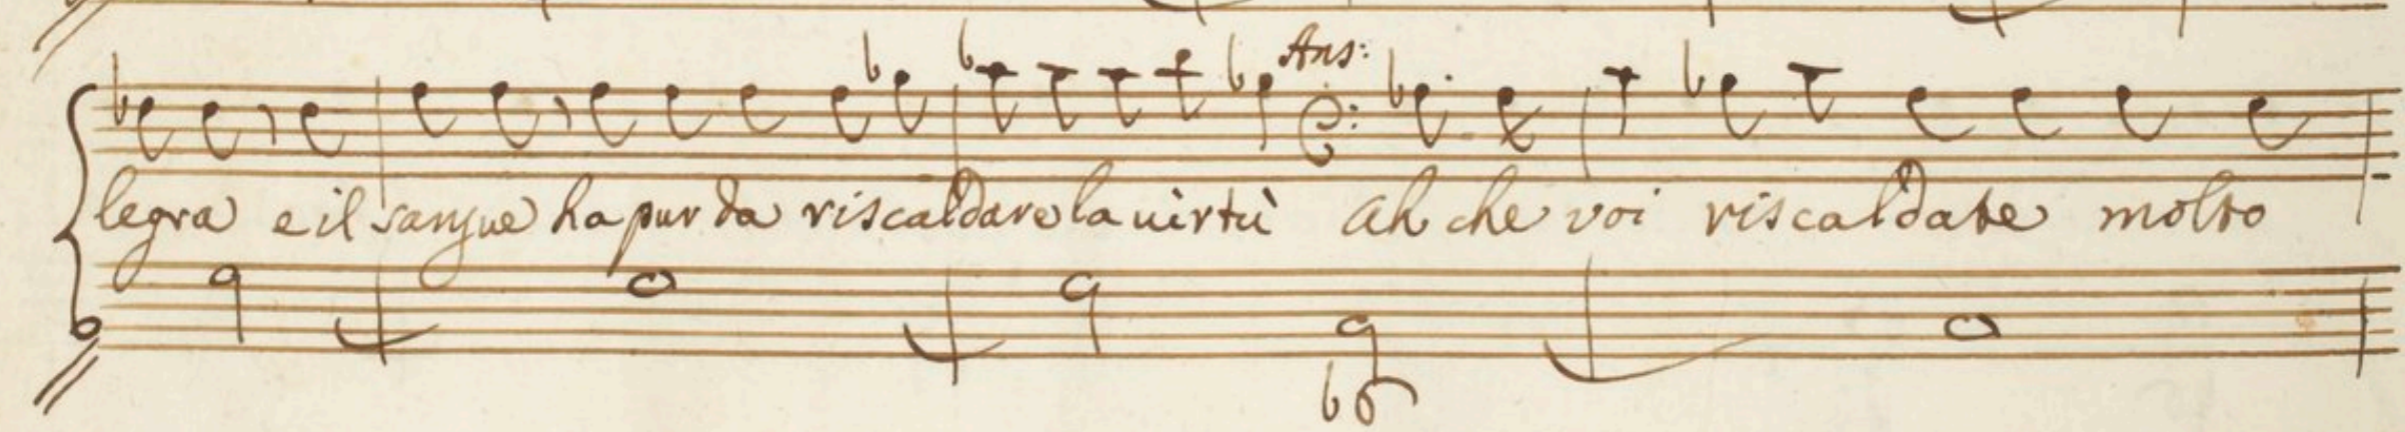 Ans:
legra e il sangue ha pur da riscaldare la uirtù Ah che voi riscaldate molto
b6